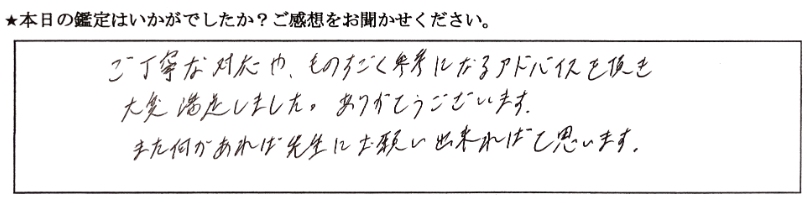 ★本日の鑑定はいかがでしたか？ご感想をお聞かせください。
ご丁寧な対応や、ものすごく参考になるアドバイスを頂き
大変満足しました。ありがとうございます。
また何かあれば先生にお願い出来ればと思います。